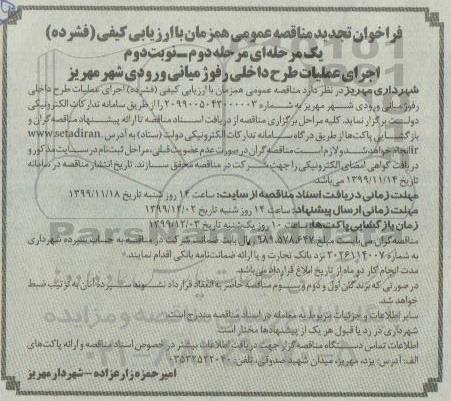 فراخوان تجدید مناقصه عمومی همزمان با ارزیابی کیفی (فشرده)
یک مرحله‌ای مرحله دوم – نوبت دوم
اجرای عملیات طرح داخلی رفوژ میانی ورودی شهر مهریز
شهرداری مهریز در نظر دارد مناقصه عمومی همزمان با ارزیابی کیفی (فشرده) اجرای عملیات طرح داخلی
رفوژ میانی ورودی شهر مهریز به شماره ۲۰۹۹۰۰۵۰۴۳۰۰۰۰۰۳ را از طریق سامانه تدارکات الکترونیکی
دولت برگزار نماید. کلیه مراحل برگزاری مناقصه از دریافت اسناد مناقصه تا ارائه پیشنهاد مناقصه‌گران و
بازگشایی پاکت‌ها از طریق درگاه سامانه تدارکات الکترونیکی دولت (ستاد) به آدرس www.setadiran.
ir انجام خواهد شد و لازم است مناقصه‌گران در صورت عدم عضویت قبلی، مراحل ثبت‌نام در سایت مذکور و
دریافت گواهی امضای الکترونیکی را جهت شرکت در مناقصه محقق سازند. تاریخ انتشار مناقصه در سامانه
تاریخ ۱۳۹۹/۱۱/۱۴ می‌باشد.
مهلت زمانی دریافت اسناد مناقصه از سایت: ساعت ۱۴ روز شنبه تاریخ ۱۳۹۹/۱۱/۱۸
مهلت زمانی ارسال پیشنهاد: ساعت ۱۴ روز شنبه تاریخ ۱۳۹۹/۱۲/۰۲
زمان بازگشایی پاکت‌ها: ساعت ۱۰ روز یک‌شنبه تاریخ ۱۳۹۹/۱۲/۰۳
مناقصه‌گران می‌بایست مبلغ ریال بابت سپرده شرکت در مناقصه به حساب سپرده شهرداری
به شماره ۲۰۲۶۱۱۴۰۰۷ نزد بانک تجارت و یا ارائه ضمانت‌نامه بانکی اقدام نمایند.
مدت انجام کار دو ماه از تاریخ ابلاغ قرارداد می‌باشد.
در صورتی که برندگان اول و دوم و سوم مناقصه حاضر به انعقاد قرارداد نشوند سپرده آنان به ترتیب ضبط
خواهد شد.
سایر اطلاعات و جزئیات مربوط به معامله در اسناد مناقصه مندرج است.
شهرداری در رد یا قبول هر یک از پیشنهادها مختار است.
اطلاعات تماس دستگاه مناقصه‌گزار جهت دریافت اطلاعات بیشتر در خصوص اسناد مناقصه و ارائه پاکت‌های
الف: آدرس: یزد، مهریز، میدان شهید صدوقی، تلفن: ۰۳۵۳۲۵۳۲۰۴۰
امیرحمزه زارع‌زاده – شهردار مهریز